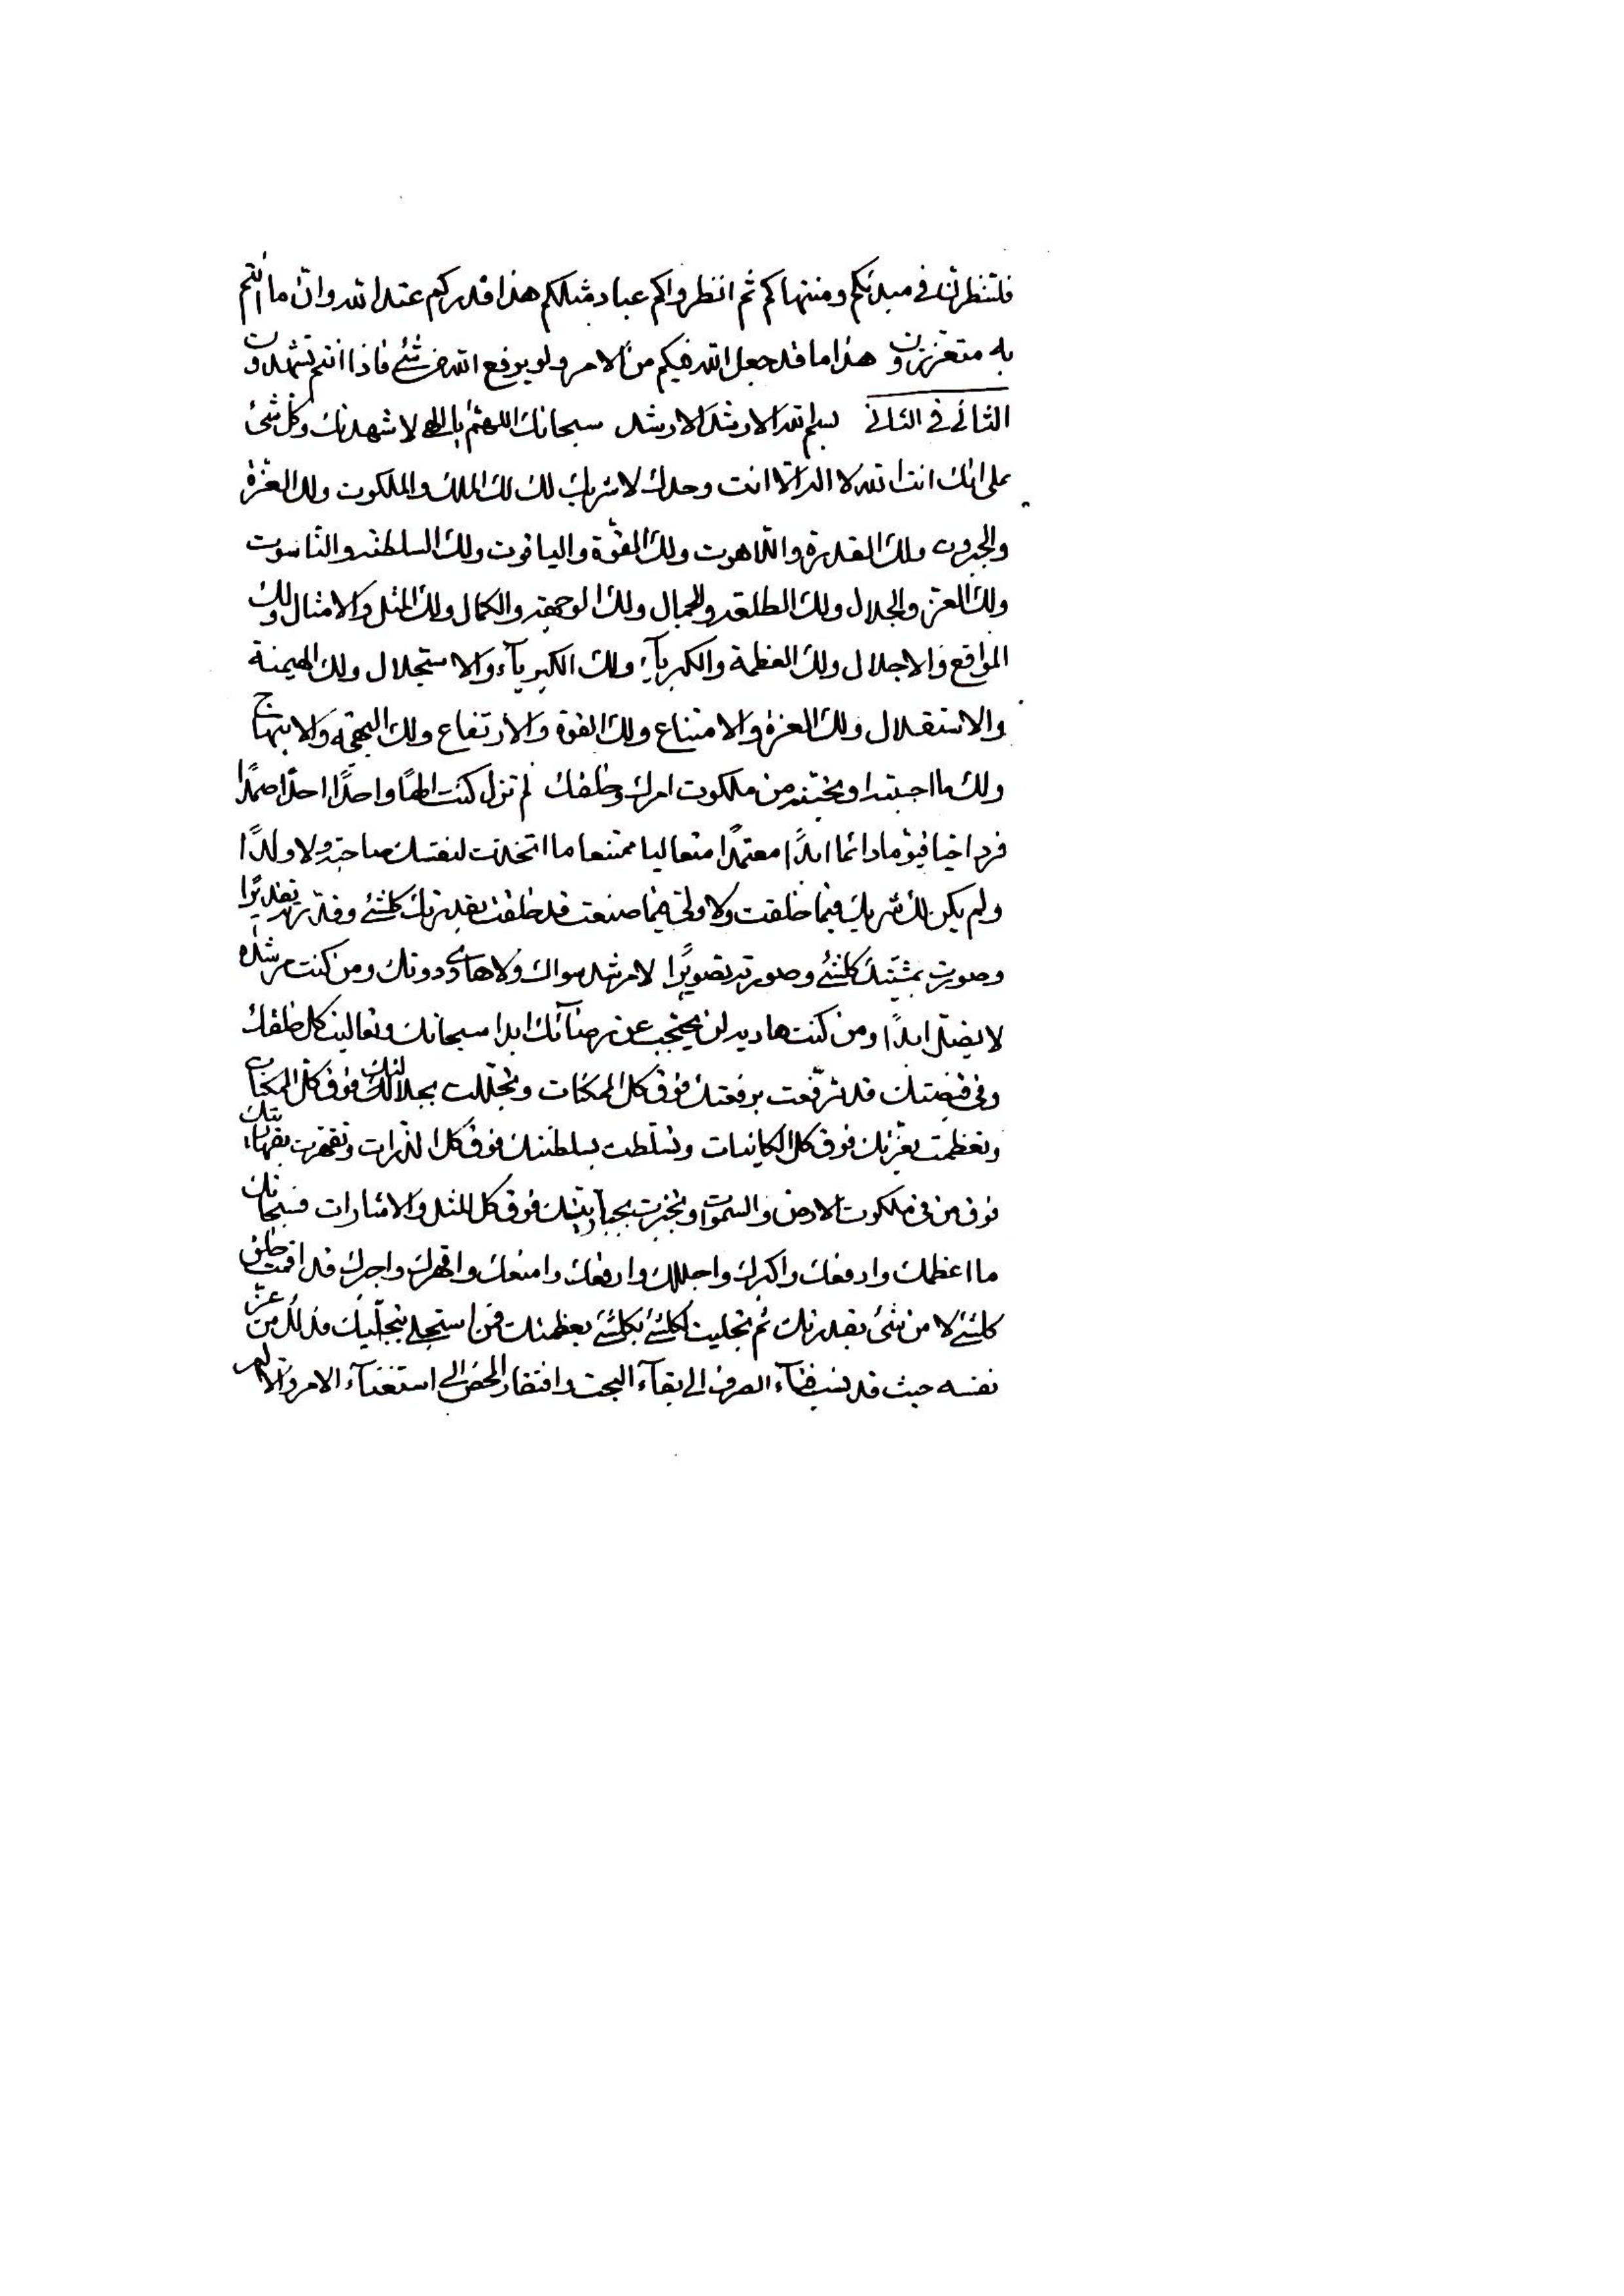 فلتنظرن في مبدئكم ومنتهاكم ثم انظروا كم عباد مثلكم هذا قدركم عند الله وان ما انتم
به متعززون هذا ما قد جعل الله فيكم من الامر ولو يرفع الله من شئ فاذا انتم تشهدون
الثاني في الثاني بسم الله الارشد الارشد سبحانك اللهم يا الهي لاشهدنك وكل شئ
على انك انت الله لا اله الا انت وحدك لا شريك لك لك الملك والملكوت ولك العزة
والجبروت ولك القدرة واللاهوت ولك القوة والياقوت ولك السلطنه والناسوت
ولك العزة والجلال ولك الطلعه والجمال ولك الوجهه والكمال ولك المثل والامثال ولك
المواقع والاجلال ولك العظمة والكبريآء ولك الكبريآء والاستجلال ولك الهيمنة
والاستقلال ولك العزة والامتناع ولك القوة والارتفاع ولك البهجة والابتهاج
ولك ما احببته او تحبنه من ملكوت امرك وخلقك لم تزل كنت الها واحدًا احدًا صمدًا
فردا حيا قيوما دائما ابدًا معتمدًا متعاليا ممتنعا ما اتخذت لنفسك صاحبة ولا ولدًا
ولم يكن لك شريك فيما خلقت ولا ولي فيما صنعت قد خلقت بقدرتك كلشئ وقدرته تقديرًا
وصورت بمشيتك كلشئ وصورته تصويرًا لا مرشد سواك ولا هادي دونك ومن كنت مرشده
لا يضل ابدًا ومن كنت هاديه لن يحتجب عن رضائك ابدا سبحانك وتعاليت كل خلقك
وفي قبضتك قد ترفعت برفعتك فوق كل الممكنات وتجللت بجلالتك فوق كل الممكنات
وتعظمت بعزتك فوق كل الكاينات وتسلطت بسلطنتك فوق كل الذرات وتقهرت بقهاريتك
فوق من في ملكوت الارض والسموات وتجبرت بجباريتك فوق كل المثل والاشارات فسبحانك
ما اعظمك وارفعك واكبرك واجللك وارفعك وامنعك واقهرك واجبرك قد اقمت خلق
كلشئ لا من شئ بقدرتك ثم تجليت لكلشئ بكلشئ بعظمتك فمن استجلى بتجليك فذلك من عز
نفسه حيث قد نسب فنآء الصرف الى بقآء البحت وافتقار المحض الى استغنآء الامر والا